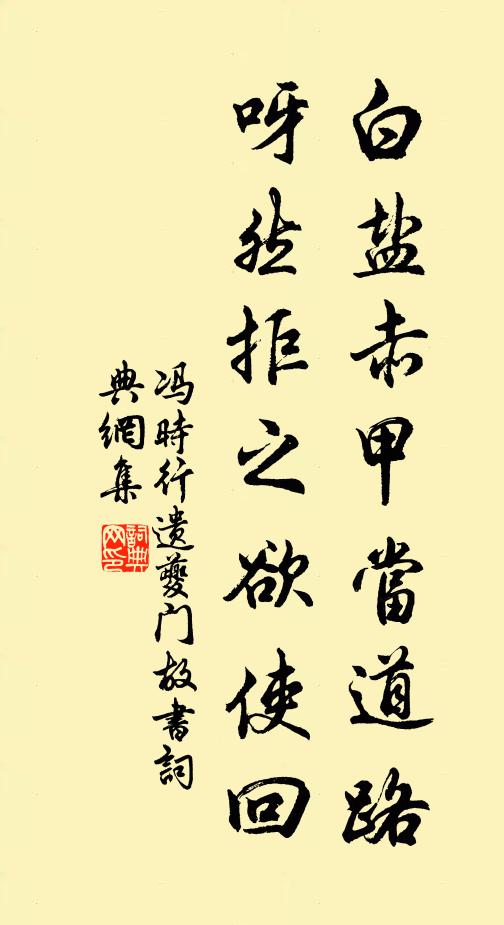 白盐赤甲當道路
呀然拒之欲使回
冯時行遗夔门故書詞
典網集
詞典网印